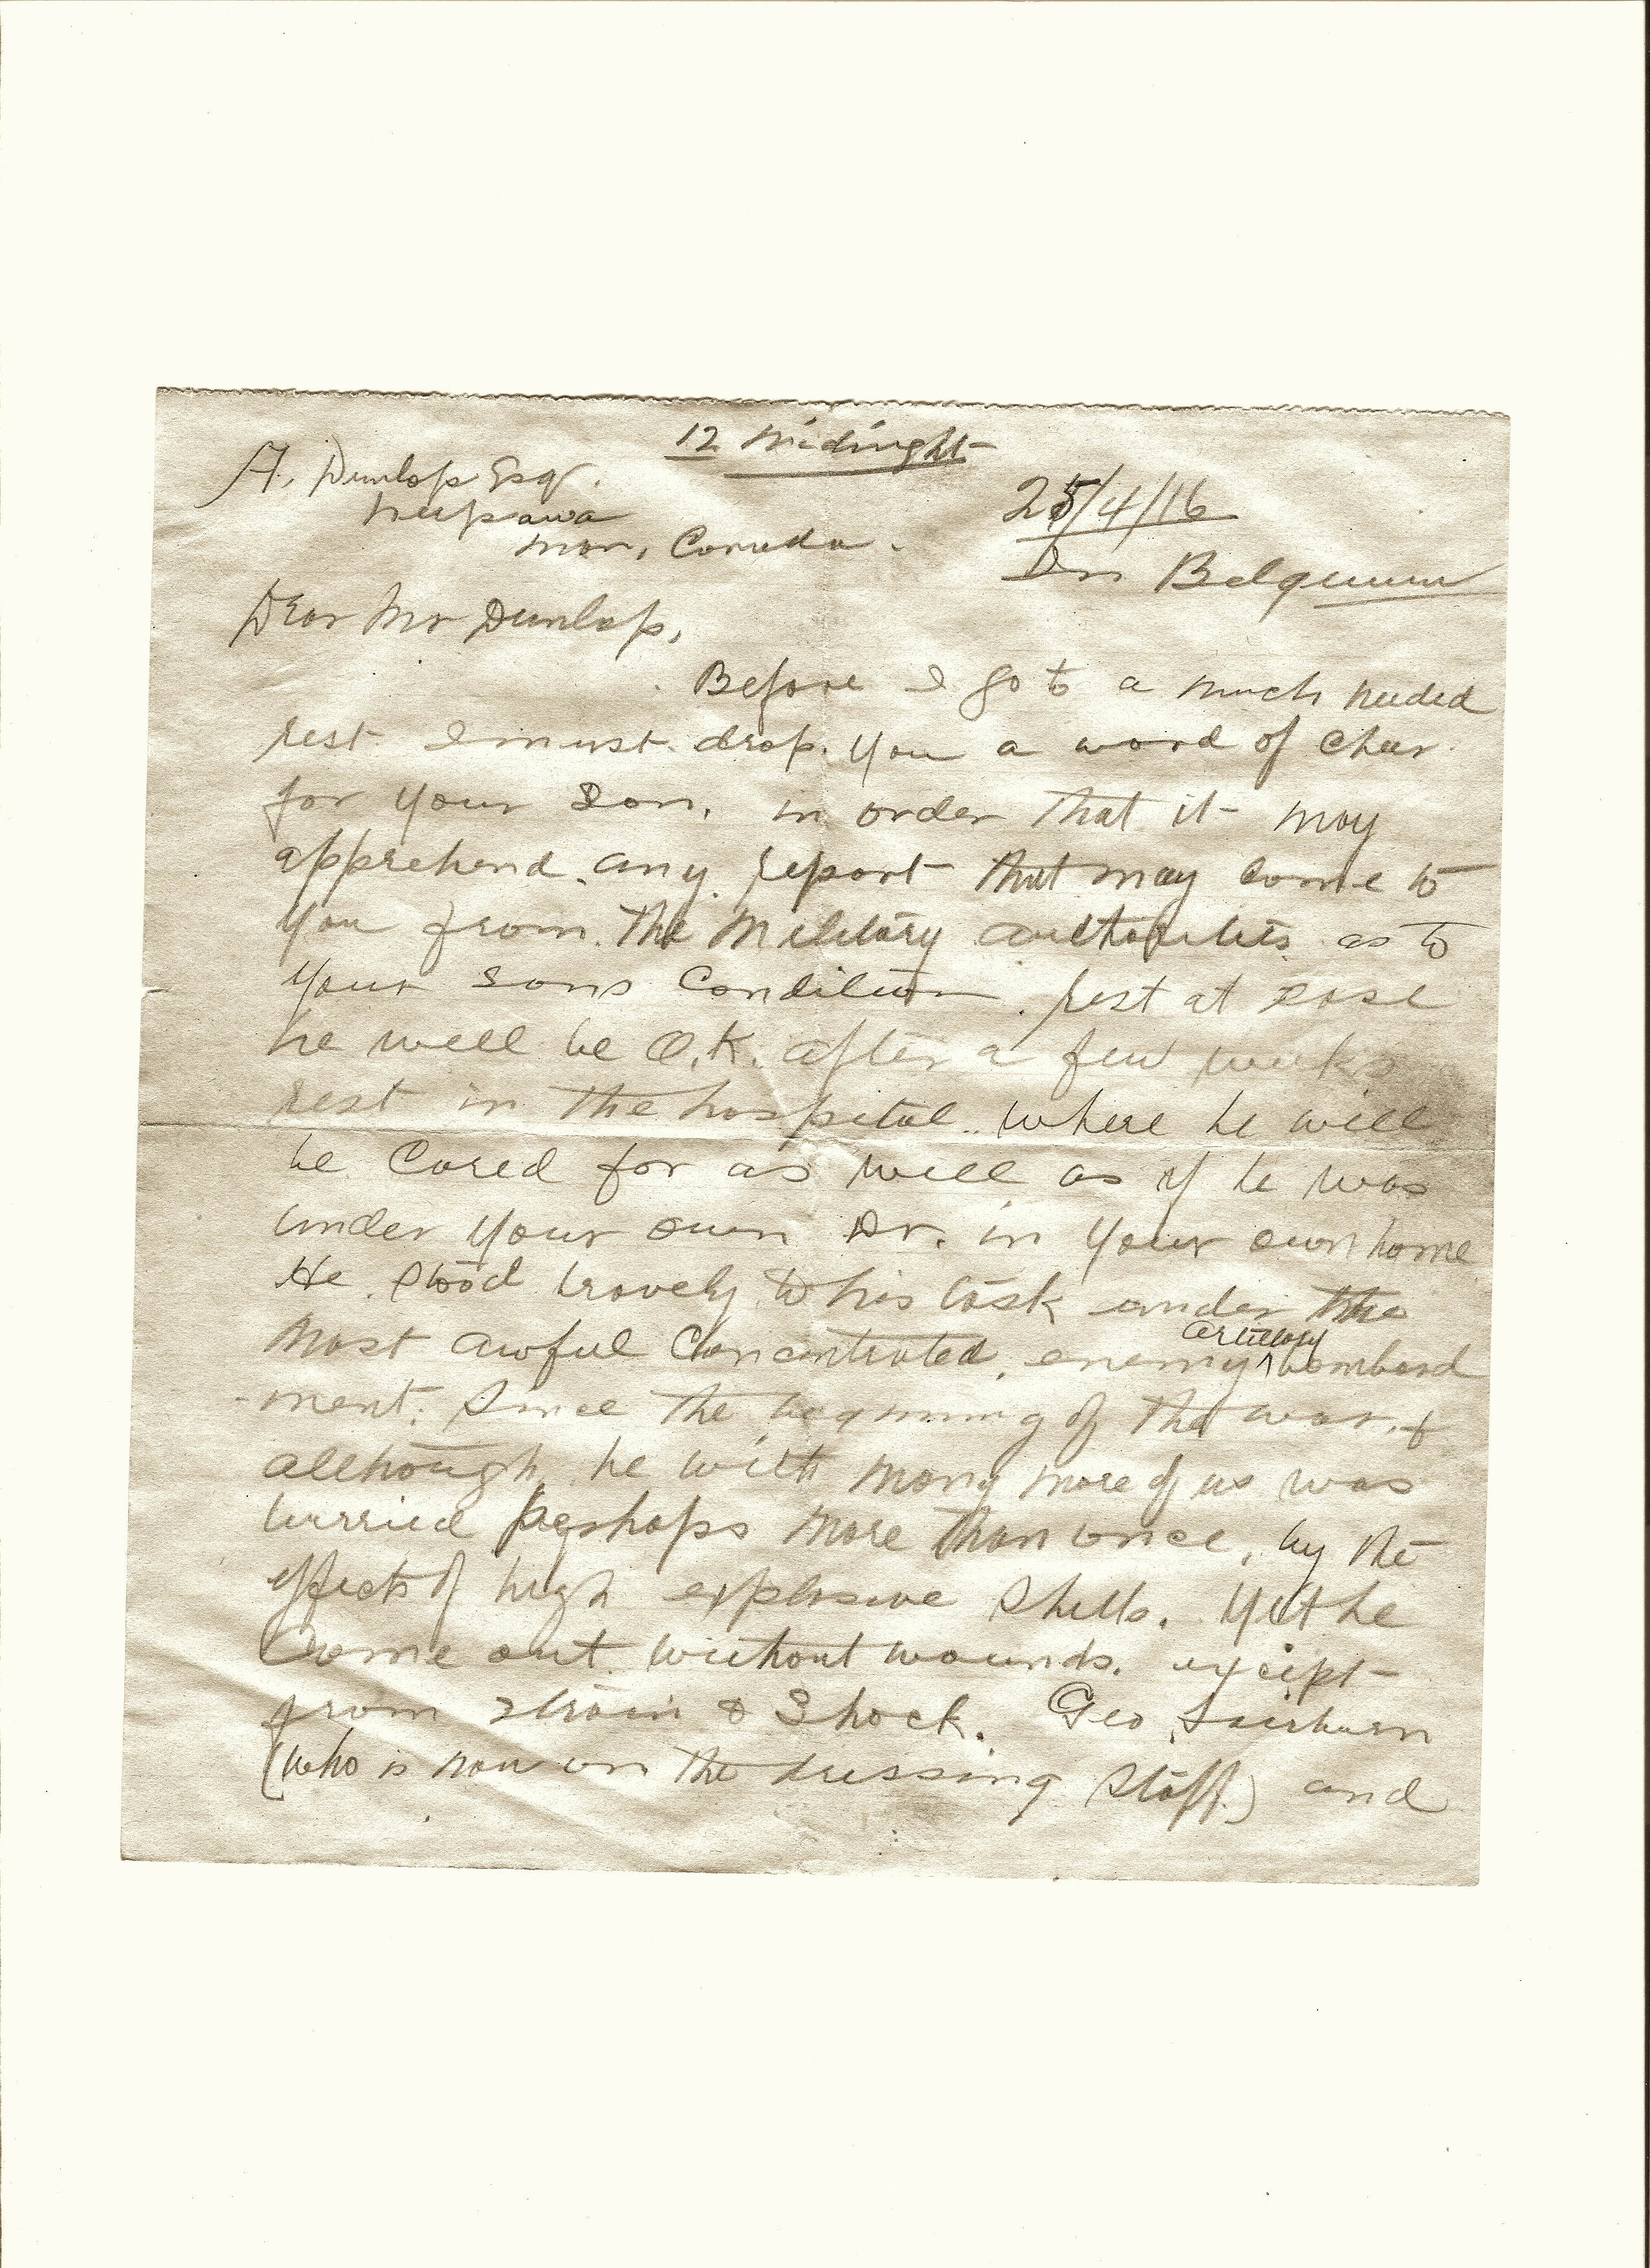 12 Midnight
A. Dunlop Esq.
Neepawa
Man, Canada.
25/4/16
In Belgium
Dear Mr Dunlop,
Before I go to a much needed
rest I must drop you a word of cheer
for your son, in order that it may
apprehend any report that may come to
you from the Military authorities as to
your sons Condition. rest at ease
he will be O.K. after a few weeks
rest in the hospital.. where he will
be cared for as well as if he was
under your own Dr. in your own home
He stood bravely to his task under the
most awful Concentrated enemy artillery bombard
-ment. Since the beginning of the war, &
although he with many more of us was
burried pershaps more than once, by the
effects of high explosive shells. Yet he
come out without wounds. except
from strain & Shock. Geo
(who is now on the dressing staff.) and